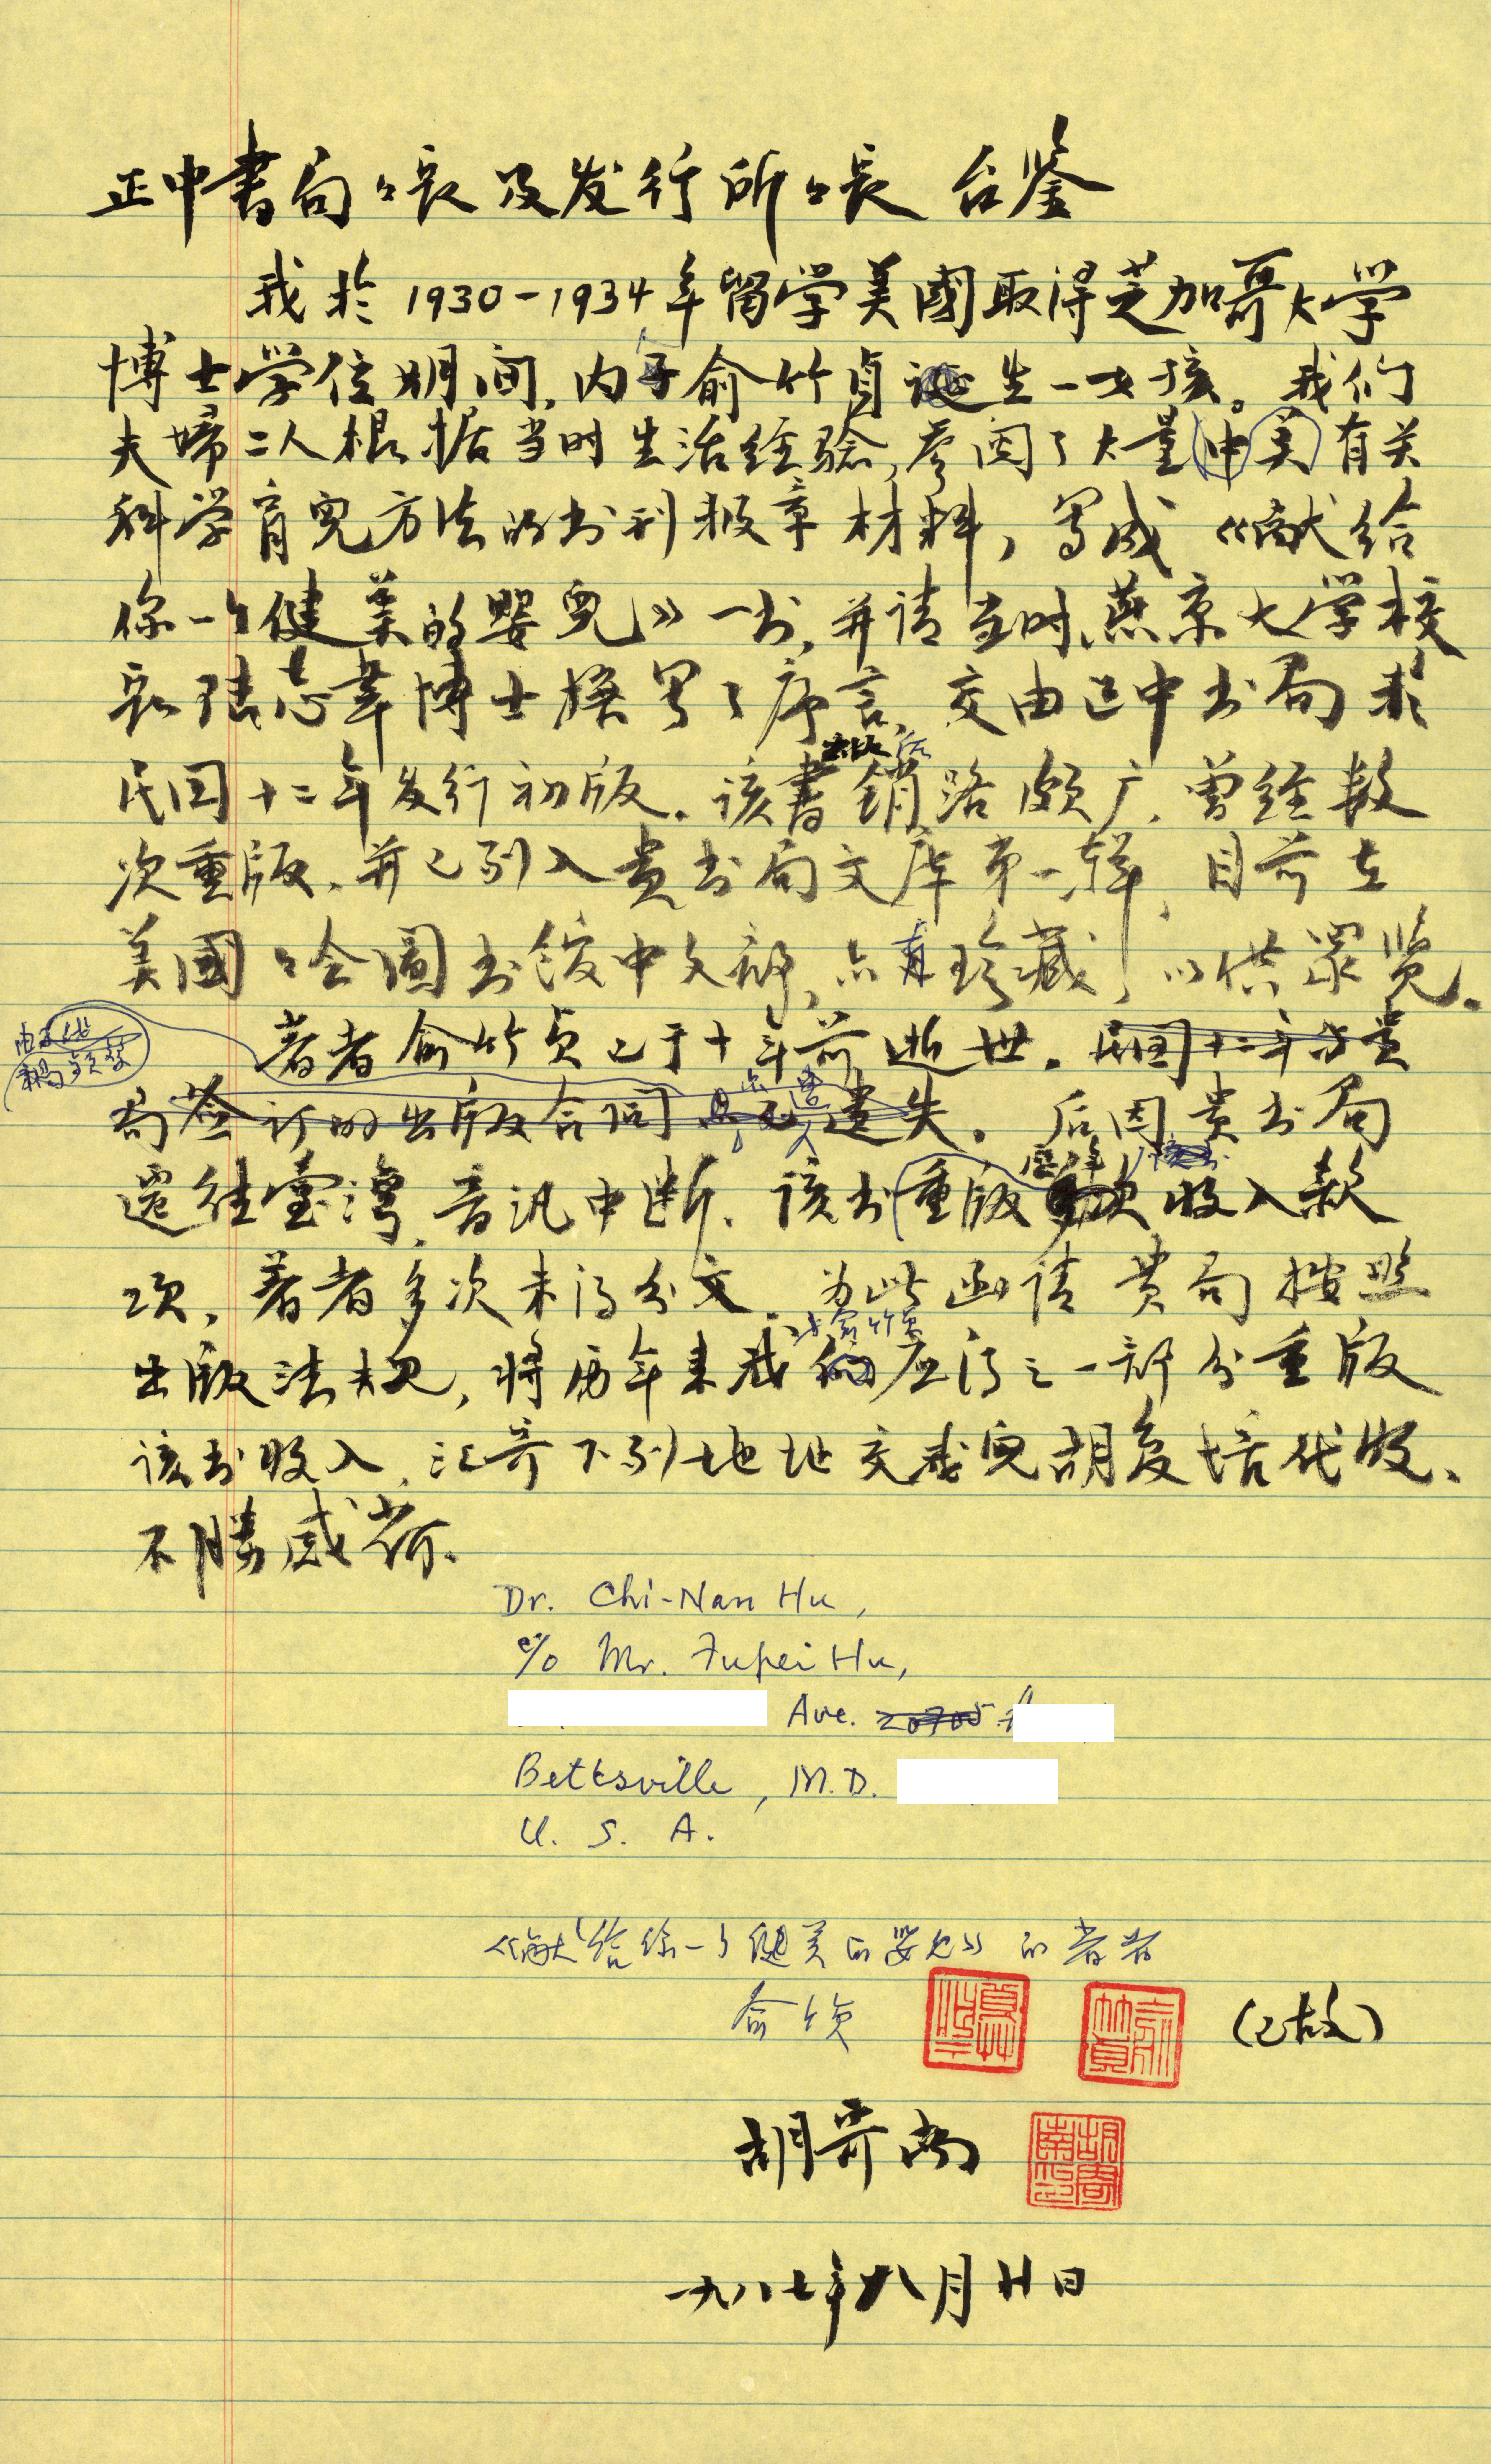 正中書局々長及发行所々長 台鉴
我於1930-1934年留学美國取得芝加哥大学
博士学位期间,内子俞竹貞诞生一女孩。我们
夫婦二人根据当时生活经验,参阅了大量中美有关
科学育兒方法的书刊报章材料,写成《献给
你一个健美的嬰兒》一书,并请当时燕京大学校
长陸志韋博士撰写了序言,交由正中书局於
民国十二年发行初版.该書銷路颇广,曾经数
次重版.并已列入贵书局文库第一辑,目前在
美國々会圖书馆中文部,亦有珍藏,以供眾览.
著者俞竹贞已于十年前逝世.民国十二年与貴
局签订的出版合同 遗失.后因貴书局
迁往臺灣,音讯中断.该书重版 收入款
项,著者多次未得分文.为此函请貴局按照
俞竹貞
出版法规,将历年来我 应得之一部分重版
该书收入,汇寄下列地址交我兒胡复培代收、
不勝感荷.
Dr. Chi-Nan Hu,
c/o Mr. Fupei Hu,
Ave. 20705
Beltsville, M.D.
U. S. A.
《献给你一个健美的婴儿》的著者
俞竹贞 俞竹貞 (已故)
胡寄南 胡寄南印
一九八七年八月廿日